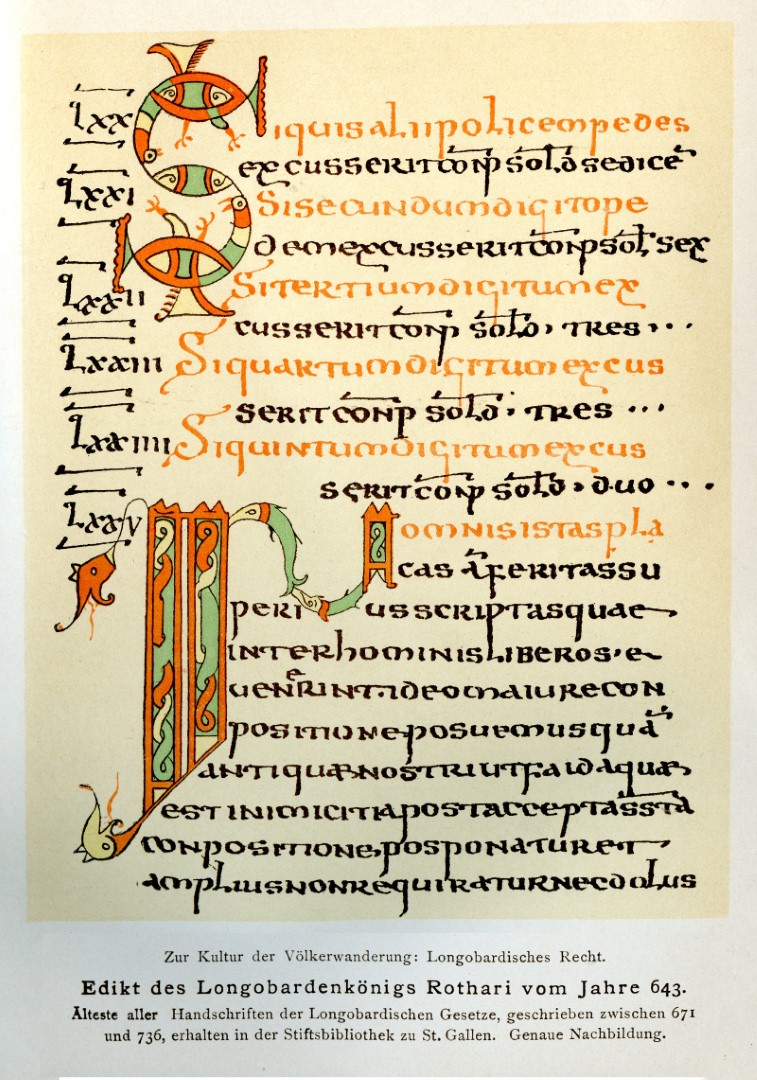 LXX Siquis alii policem pedes
excusserit conp sold sedicē
LXXI Si secundum digito pe
dem excusserit conp sol sex
LXXII Si tertium digitum ex
cusserit conp sold · tres · · ·
LXXIII Si quartum digitum excus
serit conp sold · tres · · ·
LXXIIII Si quintum digitum excus
serit conp sold · duo · · ·
LXXV IN omnis istas pla
cas feritas su
peri us scriptas quae
inter hominis liberos · e
uenerint · ideo maiure con
positione posuemus quā
antiquae nostri ut faida quae
est inimicitia post acceptā sstā
conpositione, posponatur et
amplius non requiratur nec dolus
Zur Kultur der Völkerwanderung: Longobardisches Recht.
Edikt des Longobardenkönigs Rothari vom Jahre 643.
Älteste aller Handschriften der Longobardischen Gesetze, geschrieben zwischen 671
und 736, erhalten in der Stiftsbibliothek zu St. Gallen. Genaue Nachbildung.